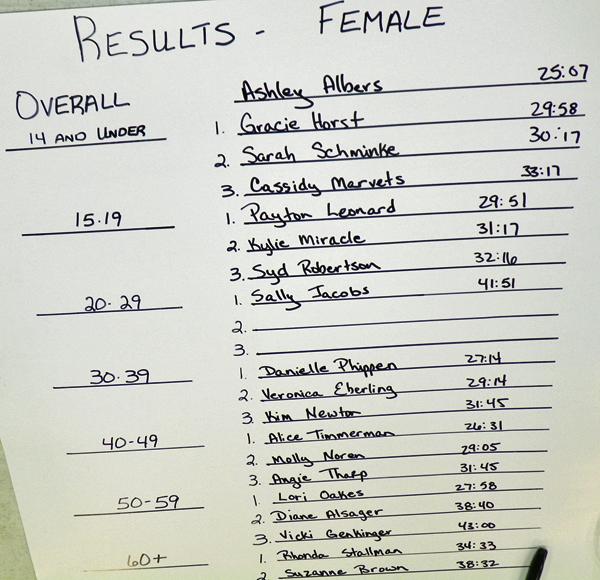 RESULTS - FEMALE
OVERALL Ashley Albers 25:07
14 AND UNDER 1. Gracie Horst 29:58
2. Sarah Schminke 30:17
3. Cassidy Marvets 33:17
15-19 1. Payton Leonard 29:51
2. Kylie Miracle 31:17
3. Syd Robertson 32:16
20-29 1. Sally Jacobs 41:51
2.
3.
30-39 1. Danielle Phippen 27:14
2. Veronica Eberling 29:14
3. Kim Newton 31:45
40-49 1. Alice Timmerman 26:31
2. Molly Noren 29:05
3. Angie Tharp 31:45
50-59 1. Lori Oakes 27:58
2. Diane Alsager 38:40
3. Vicki Genkinger 43:00
60+ 1. Rhonda Stallman 34:33
2 Suzanne Brown 38:32